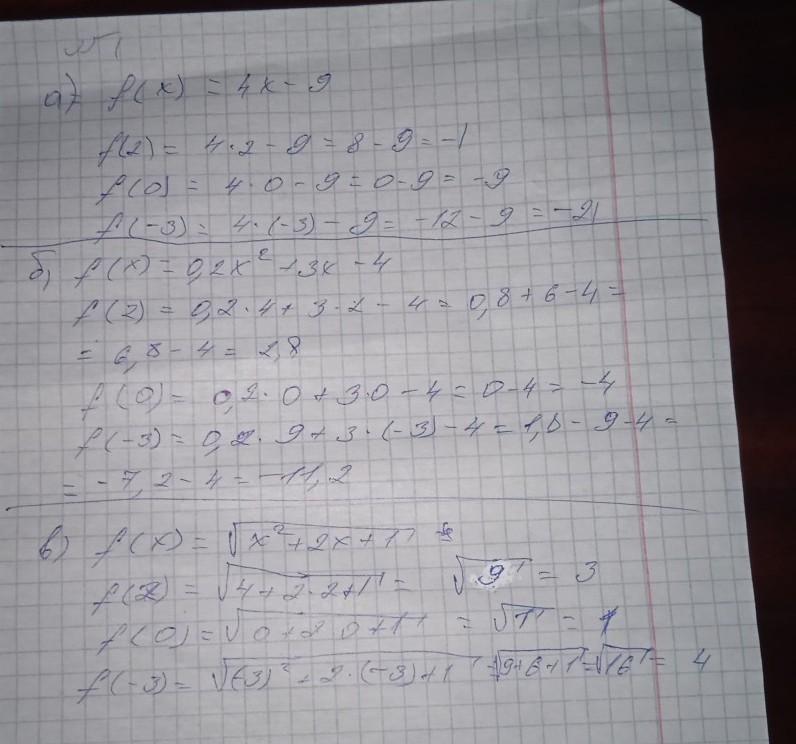 №1
а) f(x) = 4x - 9
f(2) = 4·2 - 9 = 8 - 9 = -1
f(0) = 4·0 - 9 = 0-9 = -9
f(-3) = 4·(-3) - 9 = -12 - 9 = -21
б) f(x) = 0,2x² + 3x - 4
f(2) = 0,2·4 + 3·2 - 4 = 0,8 + 6 - 4 =
= 6,8 - 4 = 2,8
f(0) = 0,2·0 + 3·0 - 4 = 0-4 = -4
f(-3) = 0,2·9 + 3·(-3) - 4 = 1,8 - 9 - 4 =
= -7,2 - 4 = -11,2
в) f(x) = √(x² + 2x + 1)
f(2) = √(4 + 2·2 + 1) = √9 = 3
f(0) = √(0 + 2·0 + 1) = √1 = 1
f(-3) = √((-3)² + 2·(-3) + 1) = √(9+6+1) = √16 = 4